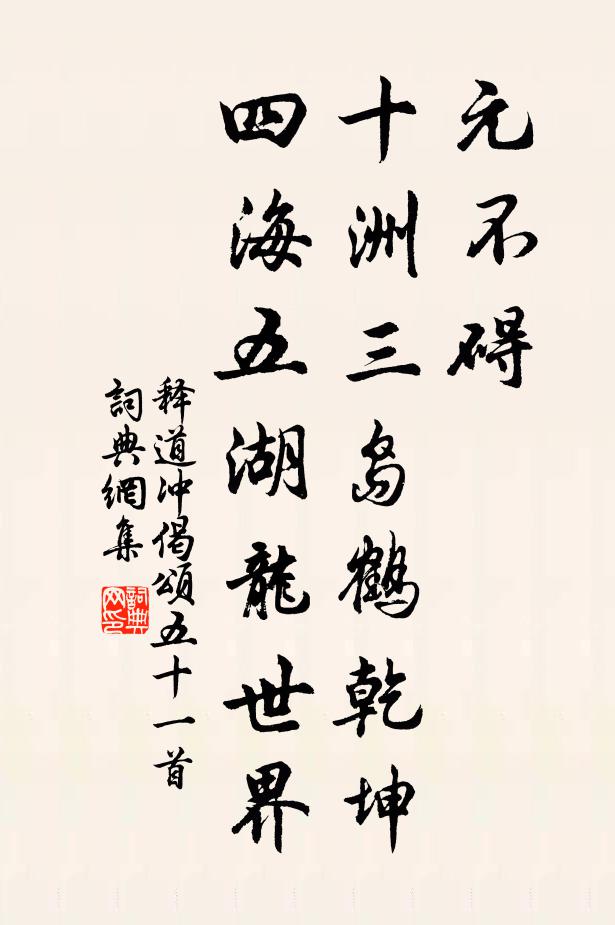 元不碍
十洲三岛鹤乾坤
四海五湖龍世界
释道冲偈颂五十一首
詞典網集
詞典网印